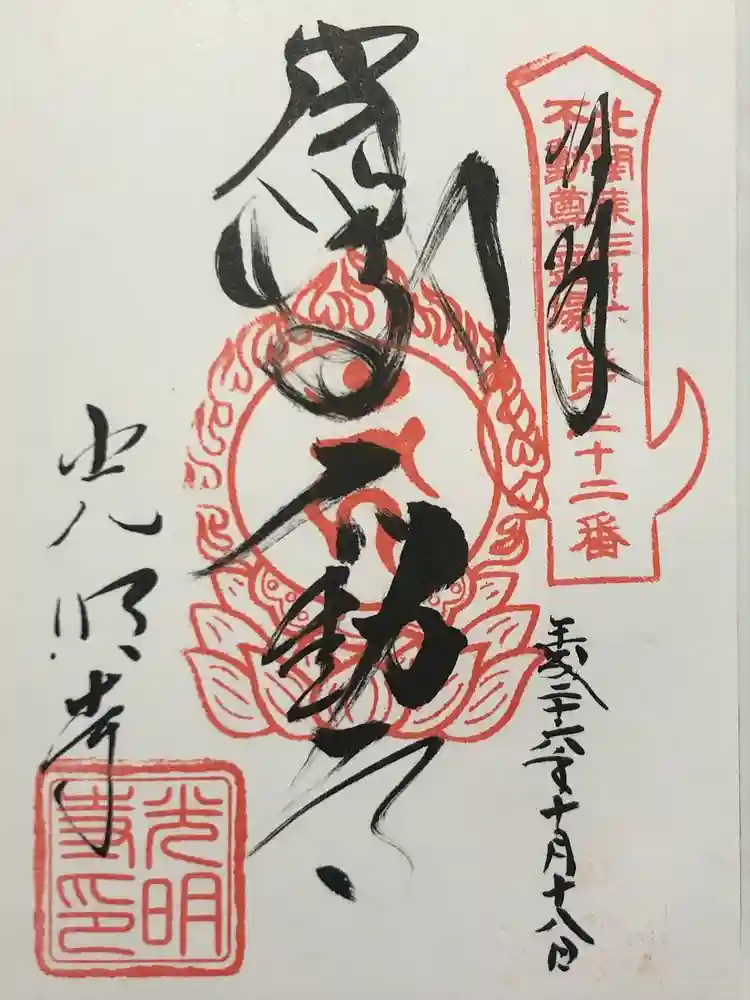 奉拝
北関東三十六
不動尊霊場
第二十二番
不動
平成二十六年十月十八日
光明寺
光明
寺印